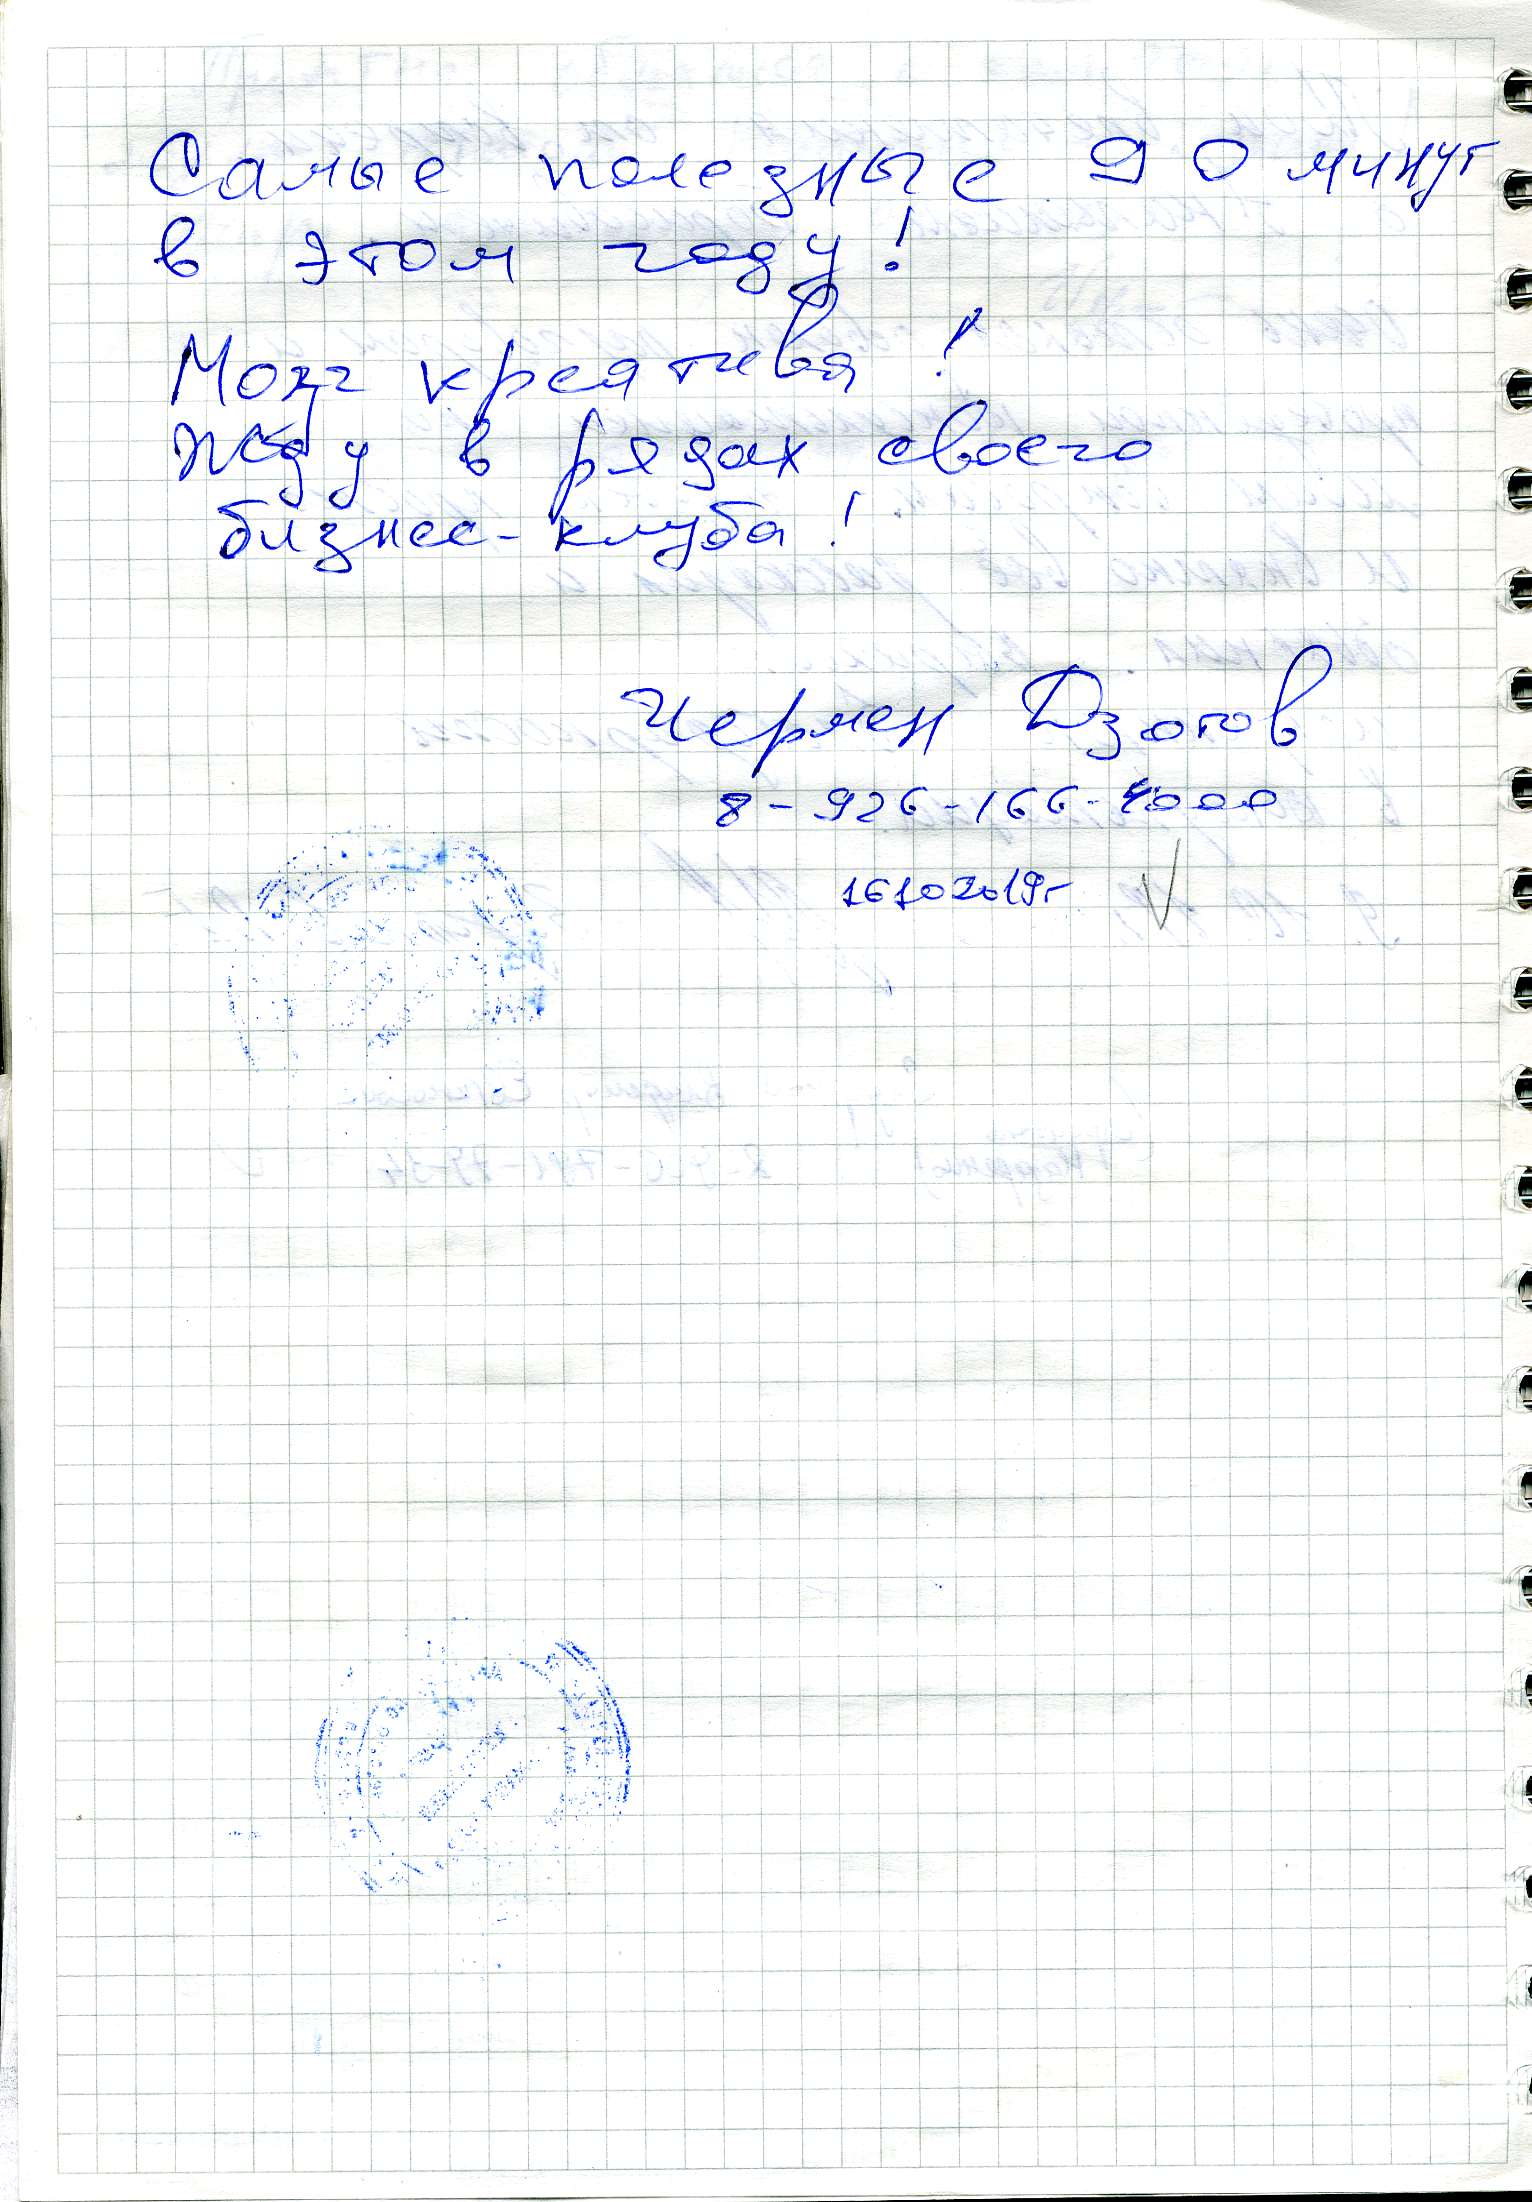 Самые полезные 90 минут
в этом году!
Мозг креатива!
Жду в рядах своего
бизнес-клуба!
Чермен Дзотов
8-926-166-4000
16102019г